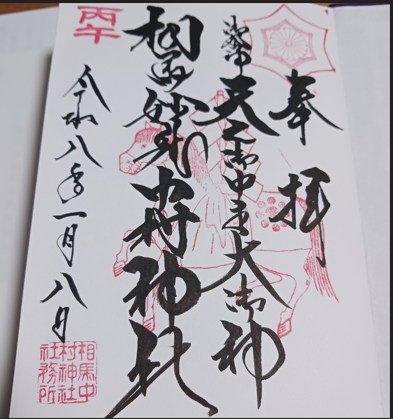 奉拝
御祭神天之御中主大御神
相馬妙見中村神社
丙午
令和八年一月八日
相馬中
村神社
社務所